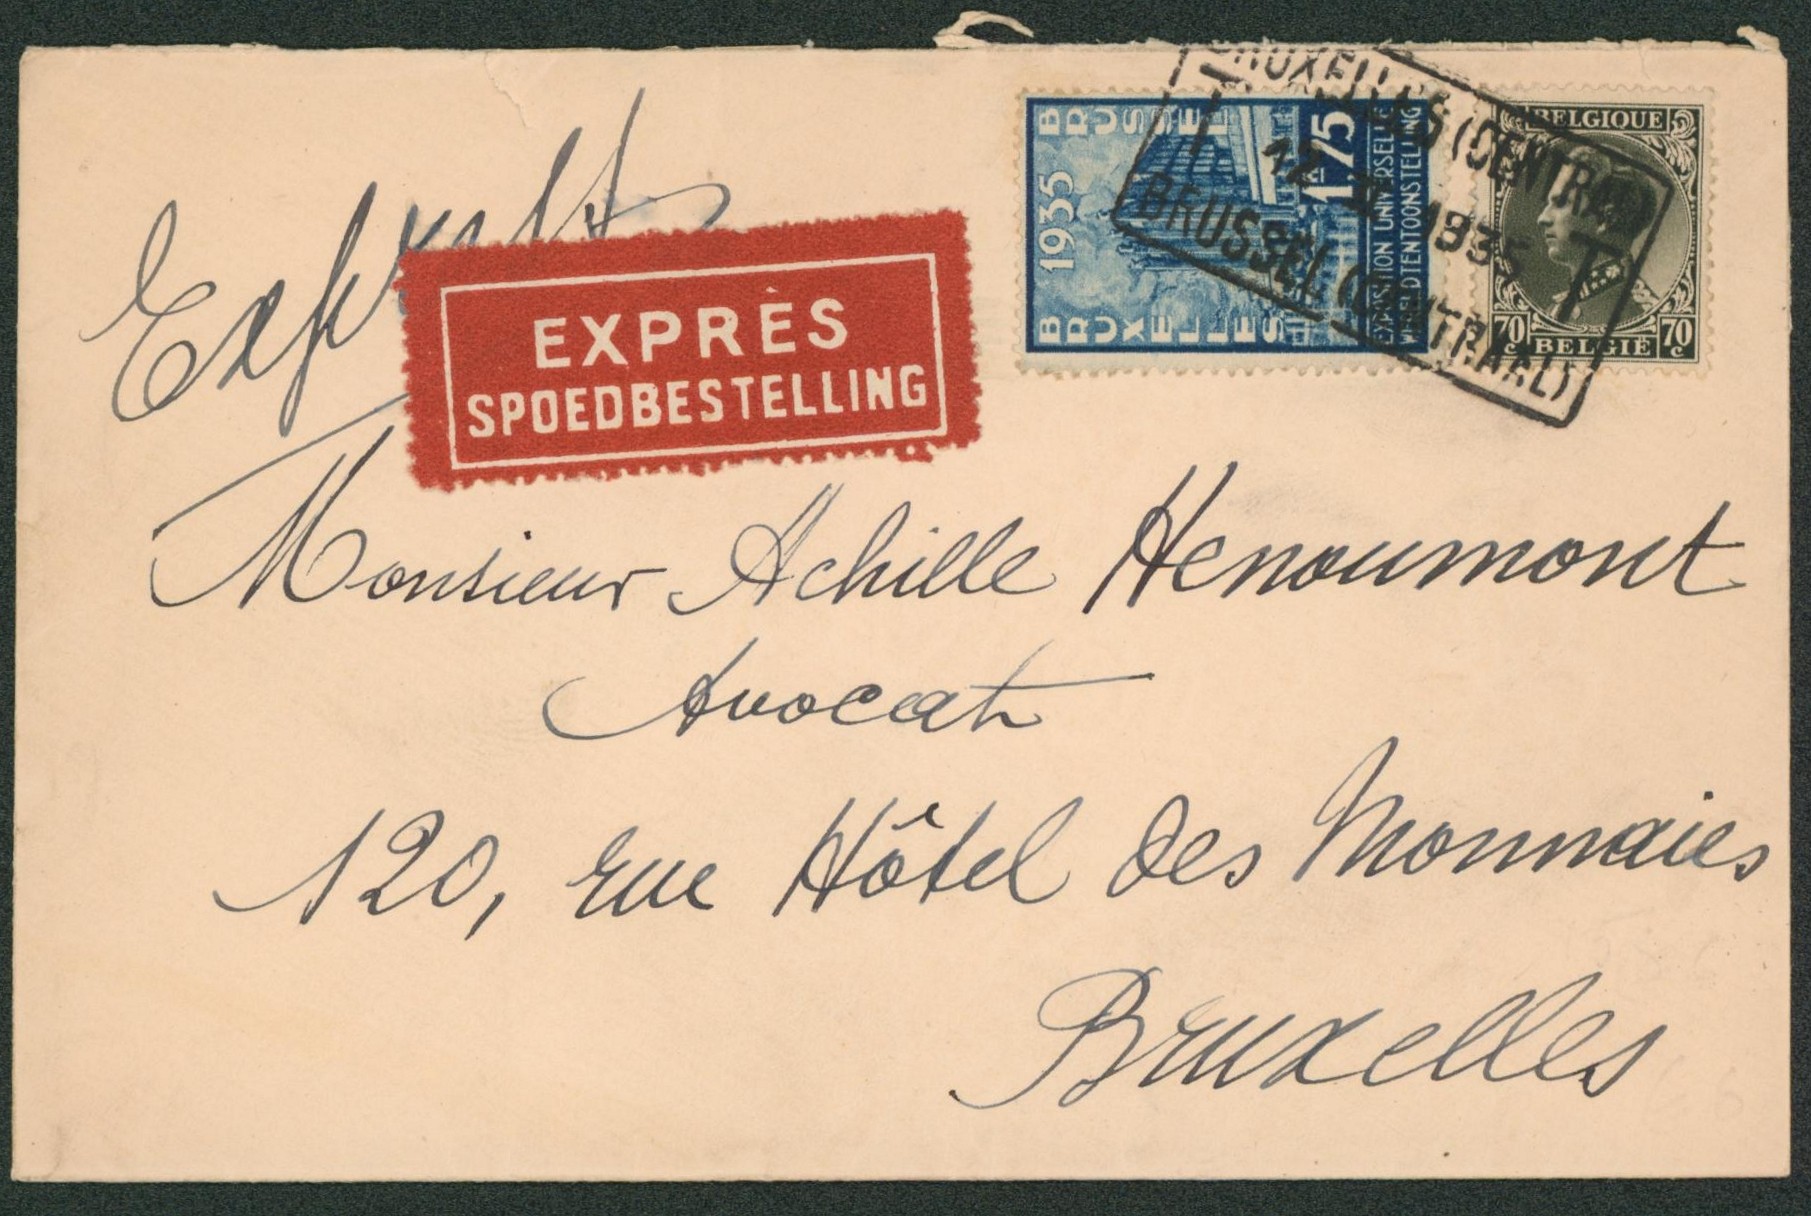 Exprès
EXPRÈS
SPOEDBESTELLING
1935
BRUSSEL
BRUXELLES
1F75
EXPOSITION UNIVERSELLE
WERELDTENTOONSTELLING
BELGIQUE
70c
70c
BELGIË
BRUXELLES (CENTRAL)
T
12
1935
T
BRUSSEL (CENTRAAL)
Monsieur Achille Henoumont
Avocat
120, rue Hôtel des Monnaies
Bruxelles